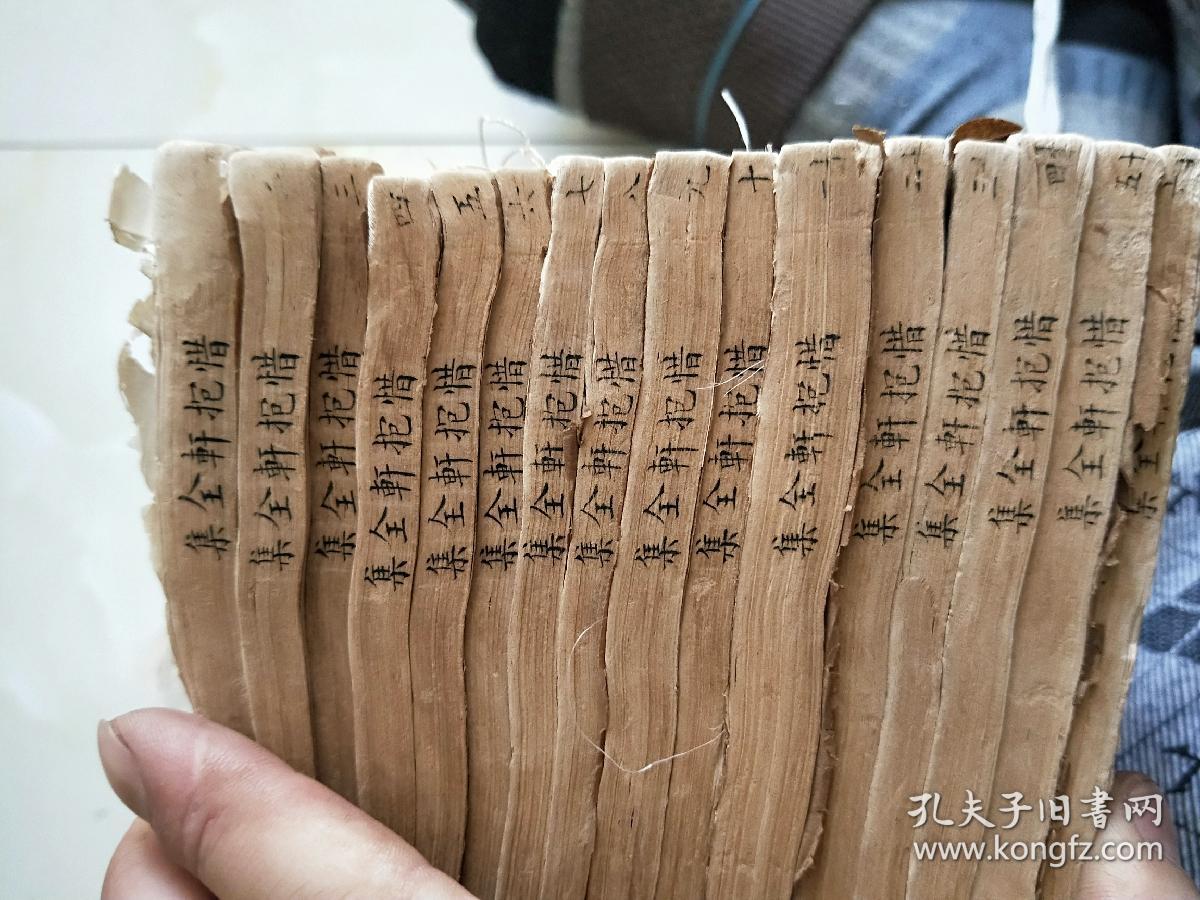 惜抱軒全集
惜抱軒全集
三 惜抱軒全集
四 惜抱軒全集
五 惜抱軒全集
六 惜抱軒全集
七 惜抱軒全集
八 惜抱軒全集
九 惜抱軒全集
十 惜抱軒全集
十一 惜抱軒全集
十二 惜抱軒全集
十三 惜抱軒全集
十四 惜抱軒全集
十五 惜抱軒全集
全集
孔夫子旧书网
www.kongfz.com